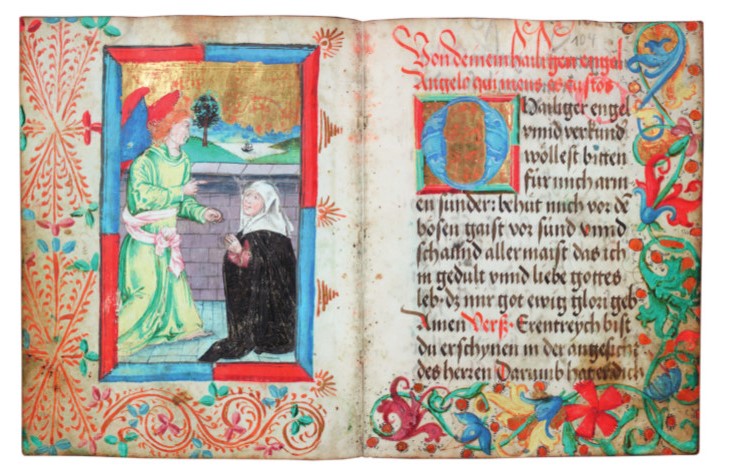 104
Von deinem hailigen engel
Angele qui meus es custos
O Hailiger engel
vnnd verkund
wöllest bitten
für mich arm
en sünder: behüt mich vor de
bösen gaist vor sünd vnnd
schannd aller maist das ich
in gedült vnnd liebe gottes
leb. dz mir got ewig glori geb
Amen Verß. Erentreych bist
du erschynen in der angesicht
des herren Darumb hat er dich